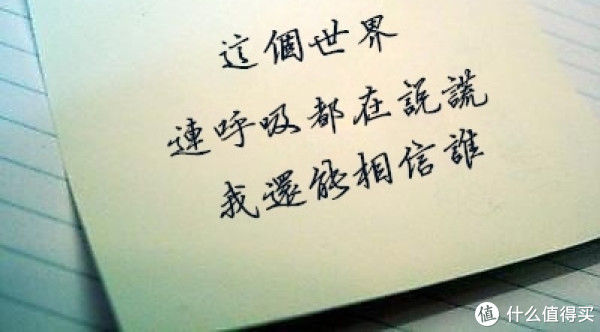 這個世界
連呼吸都在説謊
我還能相信誰
值 什么值得买